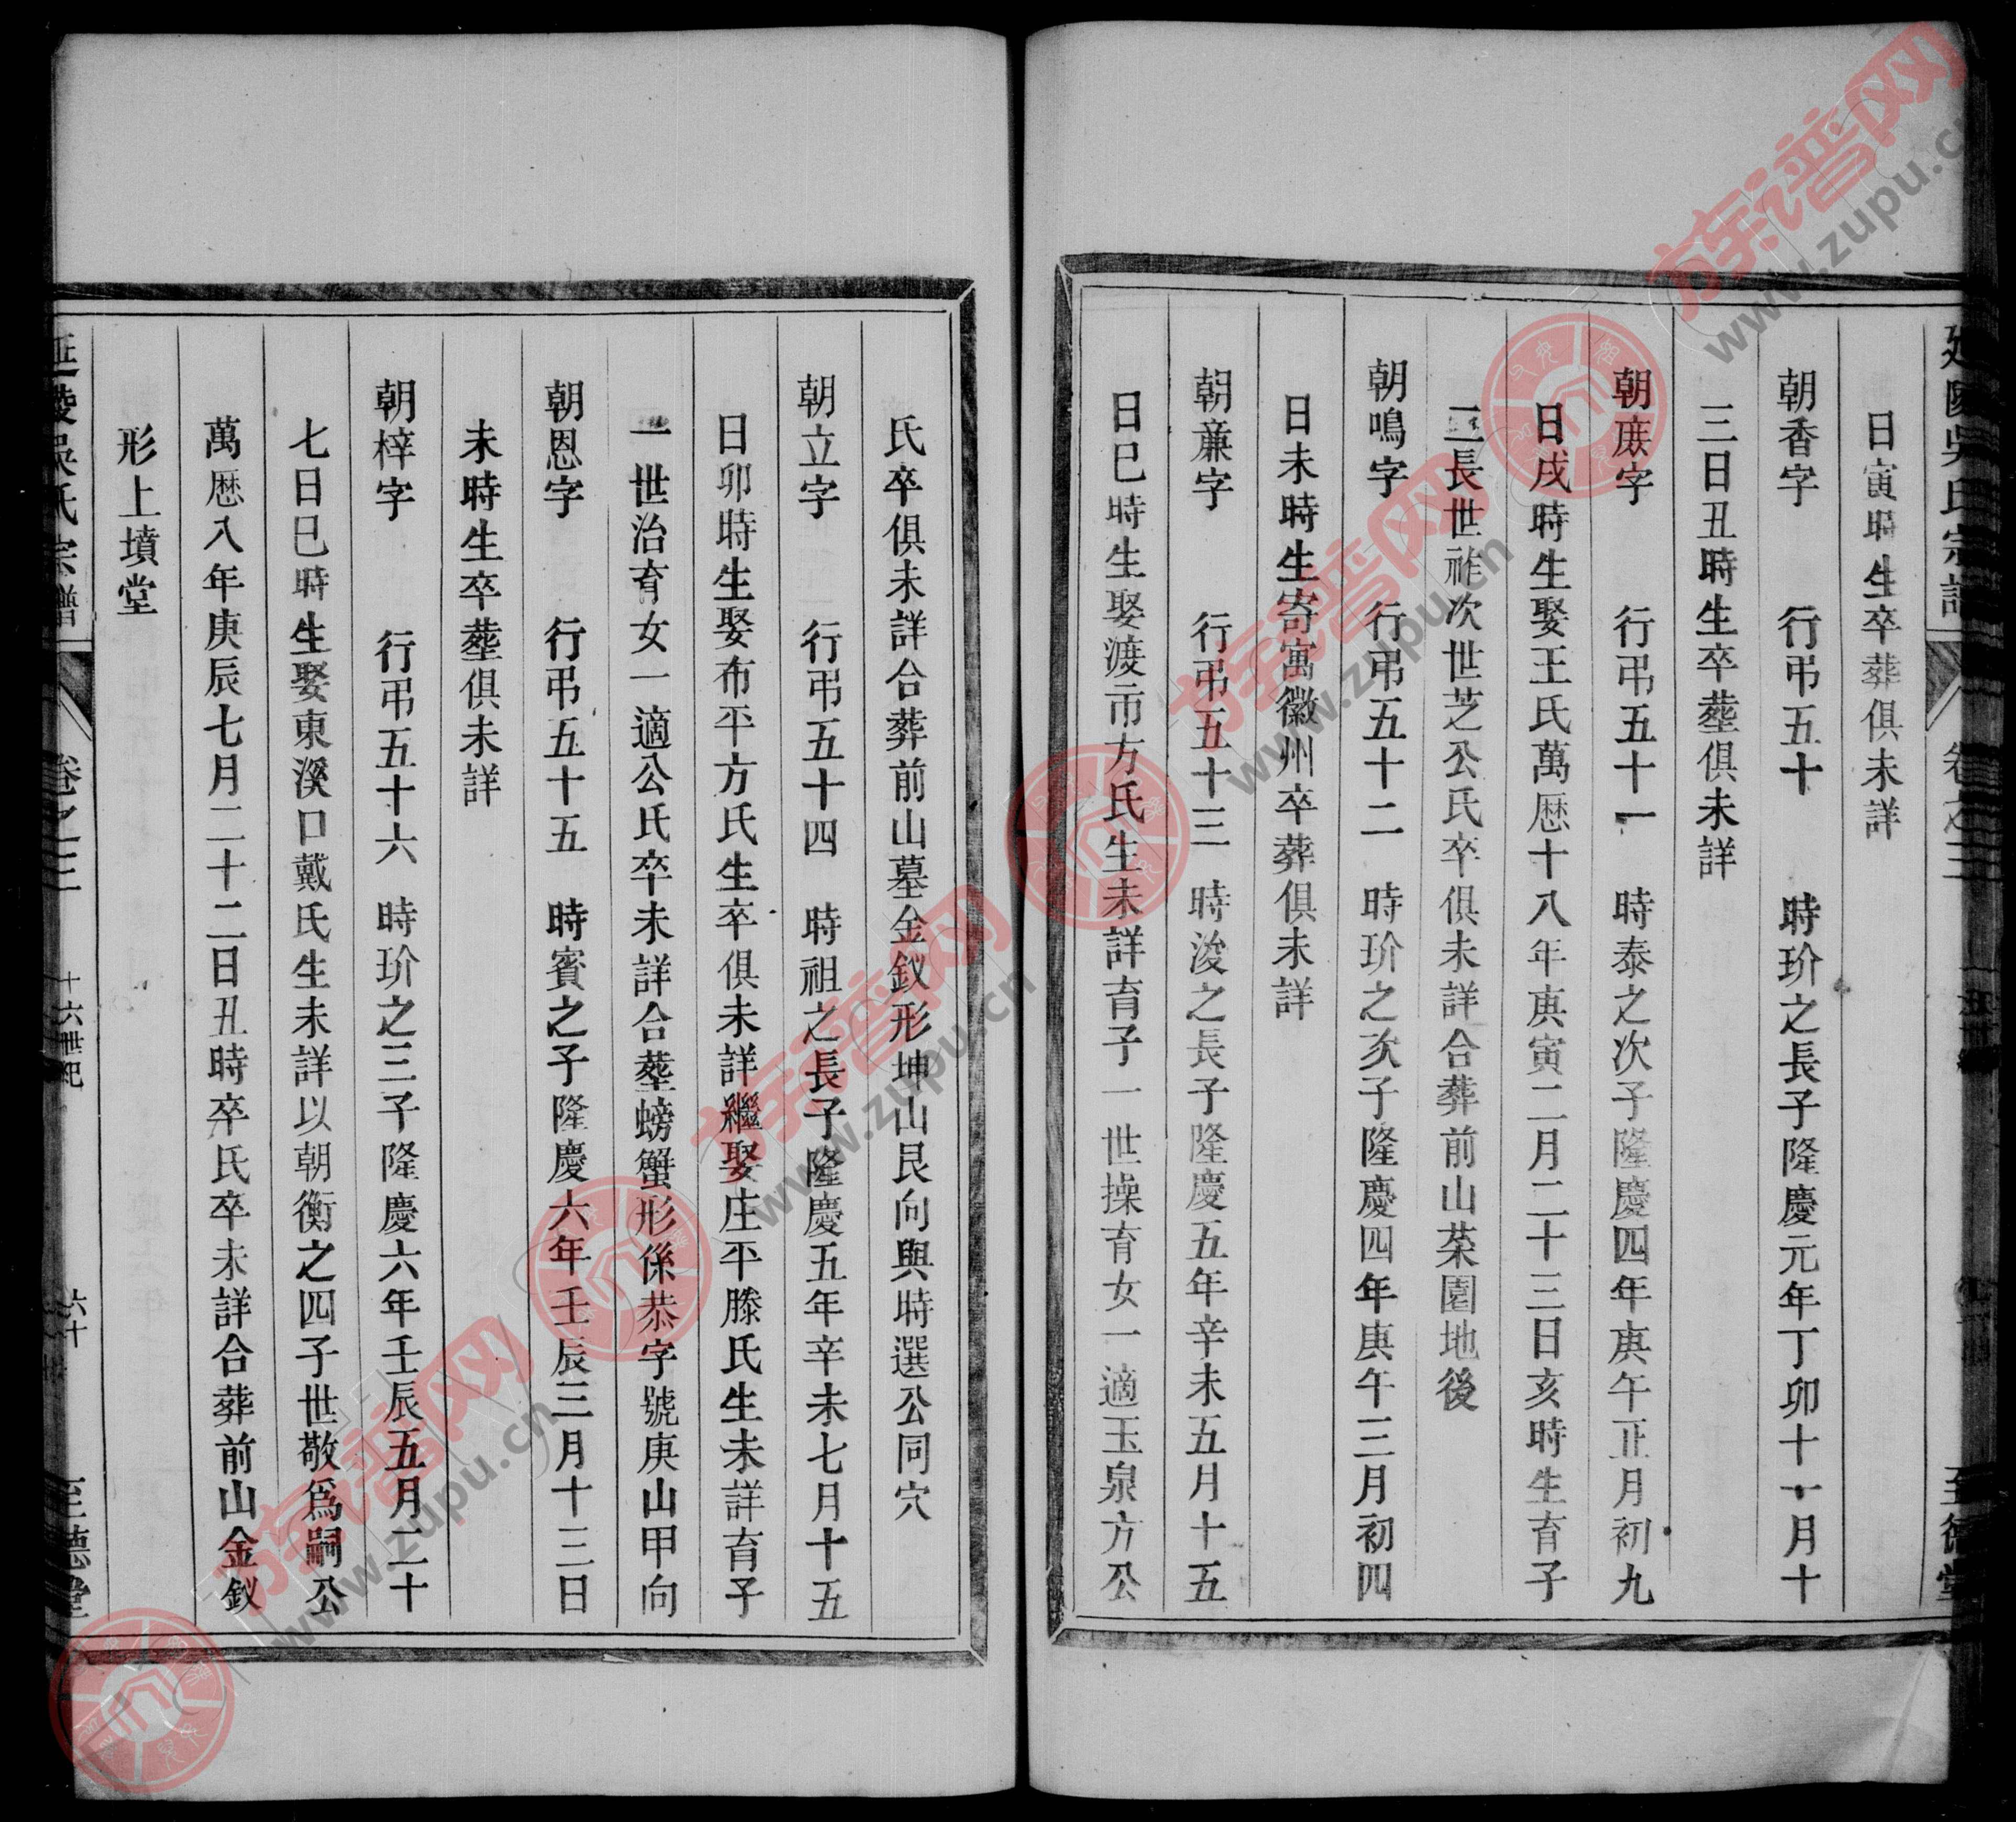 日寅時生卒葬俱未詳
朝香字 行弔五十 時玠之長子隆慶元年丁卯十一月十
三日丑時生卒塟俱未詳
朝 字 行弔五十一 時泰之次子隆慶四年庚午正月初九
日戌時生娶王氏萬厯十八年庚寅二月二十三日亥時生育子
二長世祚次世芝公氏卒俱未詳合葬前山菜園地後
朝鳴字 行弔五十二 時玠之次子隆慶四年庚午三月初四
日未時生寄寓徽州卒葬俱未詳
朝亷字 行弔五十三 時浚之長子隆慶五年辛未五月十五
日巳時生娶渡市方氏生未詳育子一世操育女一適玉泉方公
氏卒俱未詳合葬前山墓金釵形坤山艮向與時選公同穴
朝立字 行弔五十四 時祖之長子隆慶五年辛未七月十五
日卯時生娶布平方氏生卒俱未詳繼娶庄平滕氏生未詳育子
一世治育女一適公氏卒未詳合塟螃蟹形係恭字號庚山甲向
朝恩字 行弔五十五 時賓之子隆慶六年壬辰三月十三日
未時生卒塟俱未詳
朝梓字 行弔五十六 時玠之三子隆慶六年壬辰五月二十
七日巳時生娶東溪口戴氏生未詳以朝衡之四子世敬爲嗣公
萬厯八年庚辰七月二十二日丑時卒氏卒未詳合葬前山金釵
形上墳堂
延陵吳氏宗譜 卷之三 十六世紀 六十 至德堂
族谱网 www.zupu.cn
族谱网 www.zupu.cn
族谱网 www.zupu.cn
族谱网 www.zupu.cn